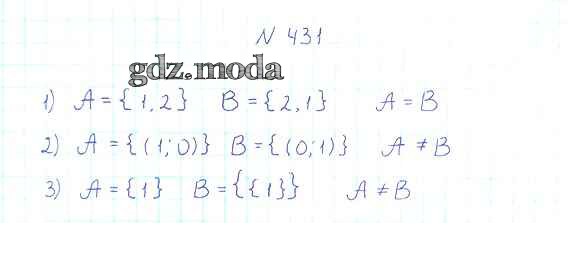 N 431
gdz.moda
1) A = {1, 2} B = {2, 1} A = B
2) A = {(1; 0)} B = {(0; 1)} A ≠ B
3) A = {1} B = {{1}} A ≠ B